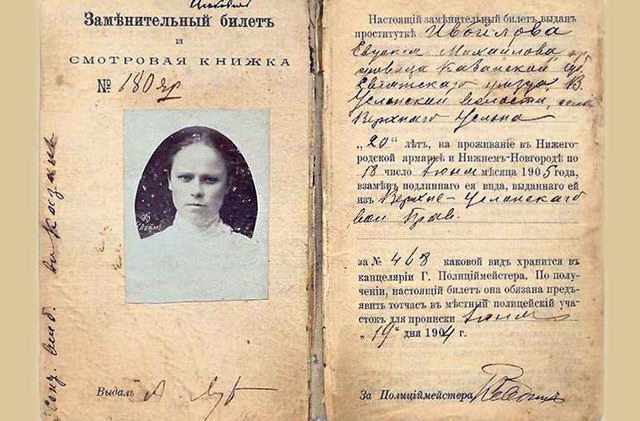 Замѣнительный билетъ
и
СМОТРОВАЯ КНИЖКА
№ 180
Выдалъ
Настоящій замѣнительный билетъ выданъ
проституткѣ Ивойлова
Евдокія Михайлова,
Казанской
Свіяжскаго уѣзда, В.
Услонской волости, села
Верхняго Услона
„20“ лѣтъ, на проживаніе въ Нижего-
родской ярмаркѣ и Нижнемъ-Новгородѣ по
18 число Іюня мѣсяца 1905 года,
взамѣнъ подлиннаго ея вида, выданнаго ей
изъ Верхне-Услонскаго
вол Прав.
за № 468 каковой видъ хранится въ
канцеляріи Г. Полиціймейстера. По полу-
ченіи, настоящій билетъ она обязана предъ-
явить тотчасъ въ мѣстный полицейскій уча-
стокъ для прописки Іюня
„19“ дня 1904 г.
За Полиціймейстера